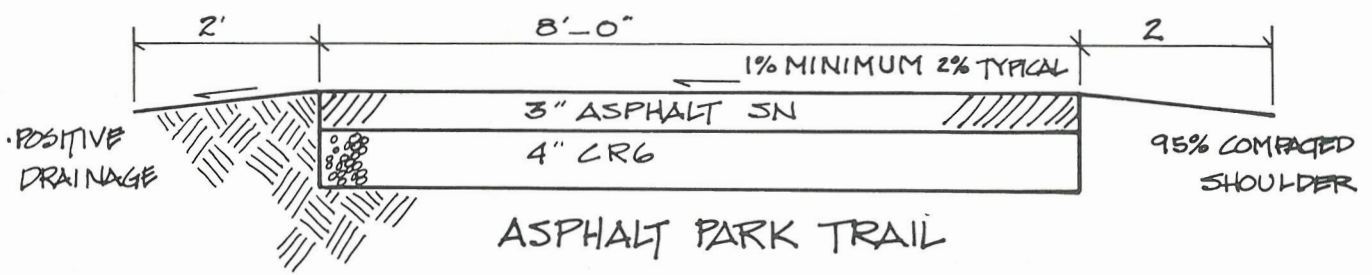 2' 8'-0" 2
1% MINIMUM 2% TYPICAL
3" ASPHALT SN
·POSITIVE
DRAINAGE
4" CR6
95% COMPACTED
SHOULDER
ASPHALT PARK TRAIL